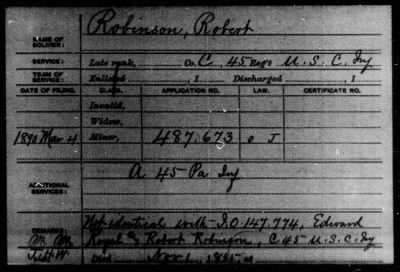 NAME OF SOLDIER: Robinson, Robert
SERVICE: Late rank, Co. C, 45 Reg't U. S. C. Inf
TERM OF SERVICE: Enlisted , 1 Discharged , 1
DATE OF FILING. CLASS. APPLICATION NO. LAW. CERTIFICATE NO.
Invalid,
Widow,
1890 Mar 4 Minor, 487.673 O J
ADDITIONAL SERVICES: A 45 Pa Inf
REMARKS: Not identical with I.O. 147.774, Edward
Robert Robinson, C 45 U.S.C. Inf
Died Nov 1, 1865 at